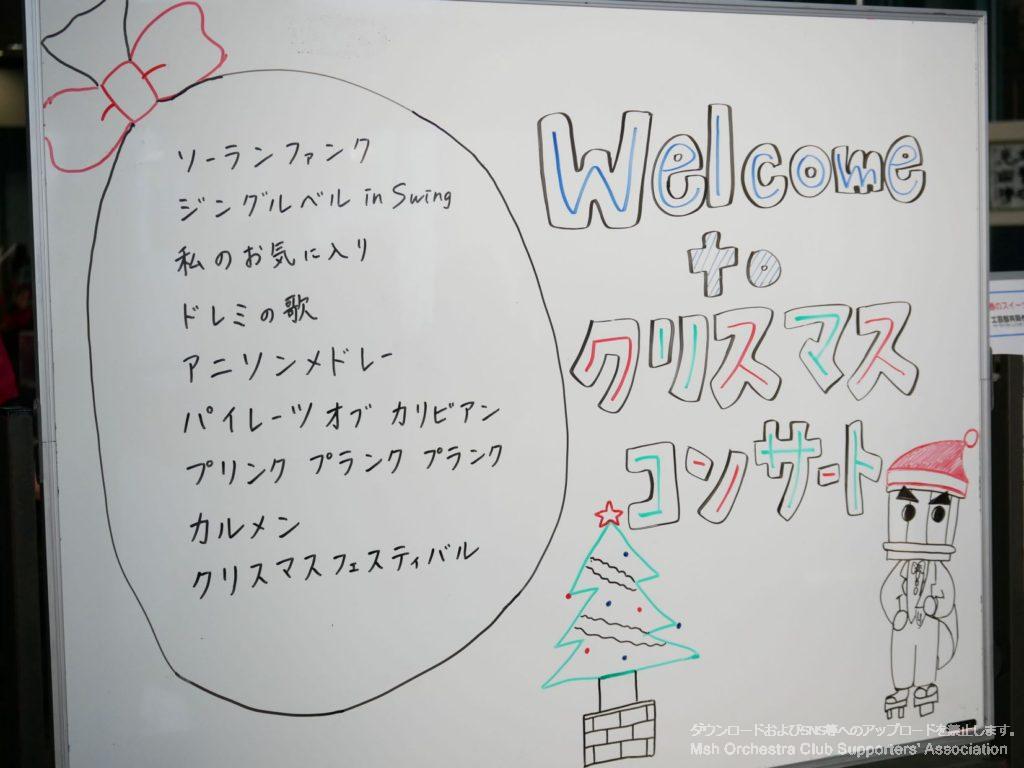 ソーランファンク
ジングルベル in Swing
私のお気に入り
ドレミの歌
アニソンメドレー
パイレーツ オブ カリビアン
プリンク プランク プランク
カルメン
クリスマスフェスティバル
Welcome
to
クリスマス
コンサート
ダウンロードおよびSNS等へのアップロードを禁止します。
Msh Orchestra Club Supporters' Association